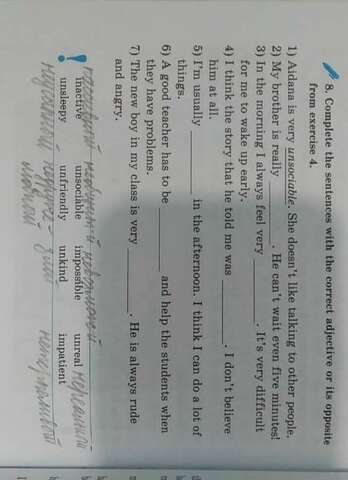 8. Complete the sentences with the correct adjective or its opposite
from exercise 4.
1) Aidana is very unsociable. She doesn't like talking to other people.
2) My brother is really ______. He can't wait even five minutes!
3) In the morning I always feel very ______. It's very difficult
for me to wake up early.
4) I think the story that he told me was ______. I don't believe
him at all.
5) I'm usually ______ in the afternoon. I think I can do a lot of
things.
6) A good teacher has to be ______ and help the students when
they have problems.
7) The new boy in my class is very ______. He is always rude
and angry.
! inactive unsociable impossible unreal
unsleepy unfriendly unkind impatient